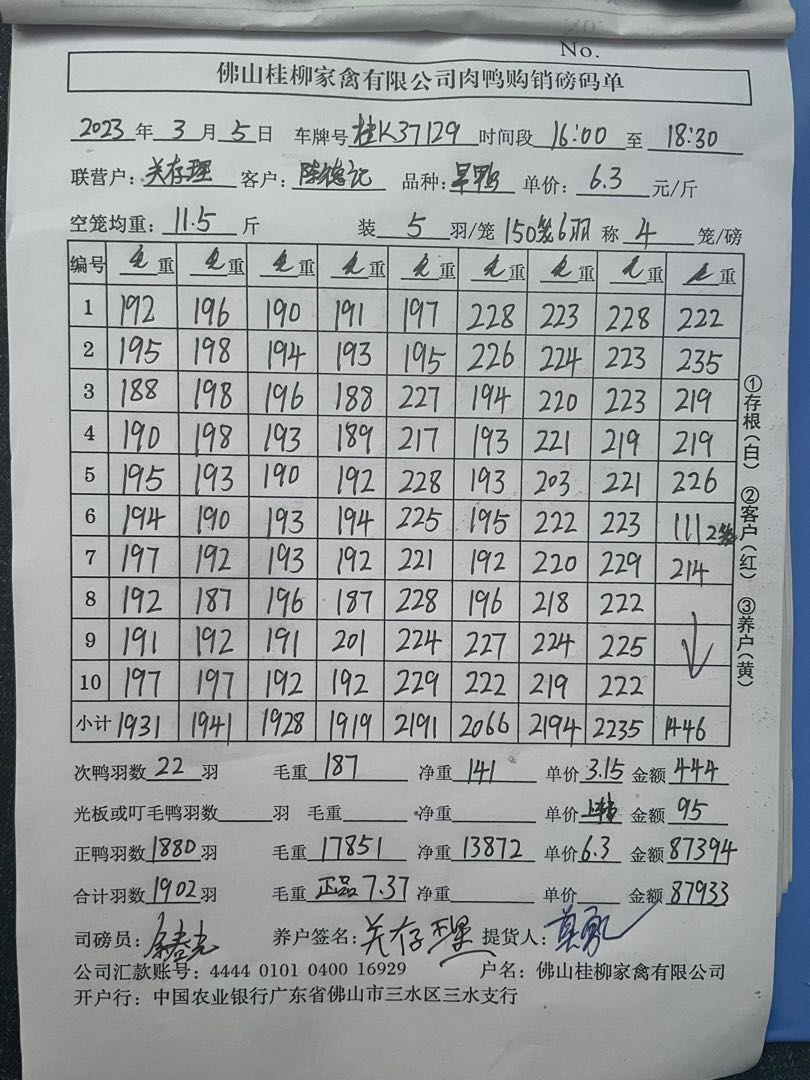 No.
佛山桂柳家禽有限公司肉鸭购销磅码单
2023 年 3 月 5 日 车牌号 桂K37129 时间段 16:00 至 18:30
联营户: 关存理 客户: 陈德记 品种: 旱鸭 单价: 6.3 元/斤
空笼均重: 11.5 斤 装 5 羽/笼 150笼6羽 称 4 笼/磅
编号 毛重 毛重 毛重 毛重 毛重 毛重 毛重 毛重 毛重
1 192 196 190 191 197 228 223 228 222
2 195 198 194 193 195 226 224 223 235
3 188 198 196 188 227 194 220 223 219
4 190 198 193 189 217 193 221 219 219
5 195 193 190 192 228 193 203 221 226
6 194 190 193 194 225 195 222 223 111 2笼
7 197 192 193 192 221 192 220 229 214
8 192 187 196 187 228 196 218 222
9 191 192 191 201 224 227 224 225
10 197 197 192 192 229 222 219 222
小计 1931 1941 1928 1919 2191 2066 2194 2235 1446
次鸭羽数 22 羽 毛重 187 净重 141 单价 3.15 金额 444
光板或叮毛鸭羽数 羽 毛重 净重 单价 金额 95
正鸭羽数 1880 羽 毛重 17851 净重 13872 单价 6.3 金额 87394
合计羽数 1902 羽 毛重 正品7.37 净重 单价 金额 87933
司磅员: 养户签名: 关存理 提货人:
公司汇款账号: 4444 0101 0400 16929 户名: 佛山桂柳家禽有限公司
开户行: 中国农业银行广东省佛山市三水区三水支行
①存根(白) ②客户(红) ③养户(黄)